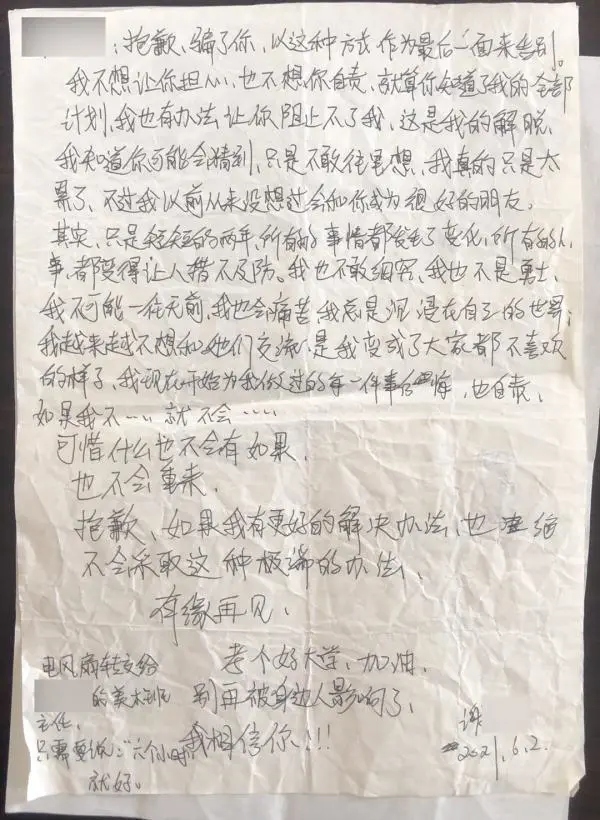 ：抱歉、骗了你，以这种方式作为最后一面来告别。
我不想让你担心、也不想你自责、就算你知道了我的全部
计划、我也有办法让你阻止不了我、这是我的解脱、
我知道你可能会猜到、只是不敢往里想、我真的只是太
累了、不过我以前从来没想过会和你成为很好的朋友。
其实、只是短短的两年、所有的事情都发生了变化、所有的人、
事、都变得让人措不及防。我也不敢细究、我也不是勇士、
我不可能一往无前、我也会痛苦、我总是沉浸在自己的世界；
我越来越不想和她们交流、是我变成了大家都不喜欢
的样子、我现在开始为我做过的每一件事后悔、也自责、
如果我不……就不会……
可惜什么也不会有如果、
也不会重来、
抱歉、如果我有更好的解决办法、也
不会采取这种极端的办法、
有缘再见、
考个好大学、加油、
别再被身边人影响了、
我相信你!!!
电风扇转交给
的美术班
主任、
只需要 六个小时
就好。
2021.6.2.